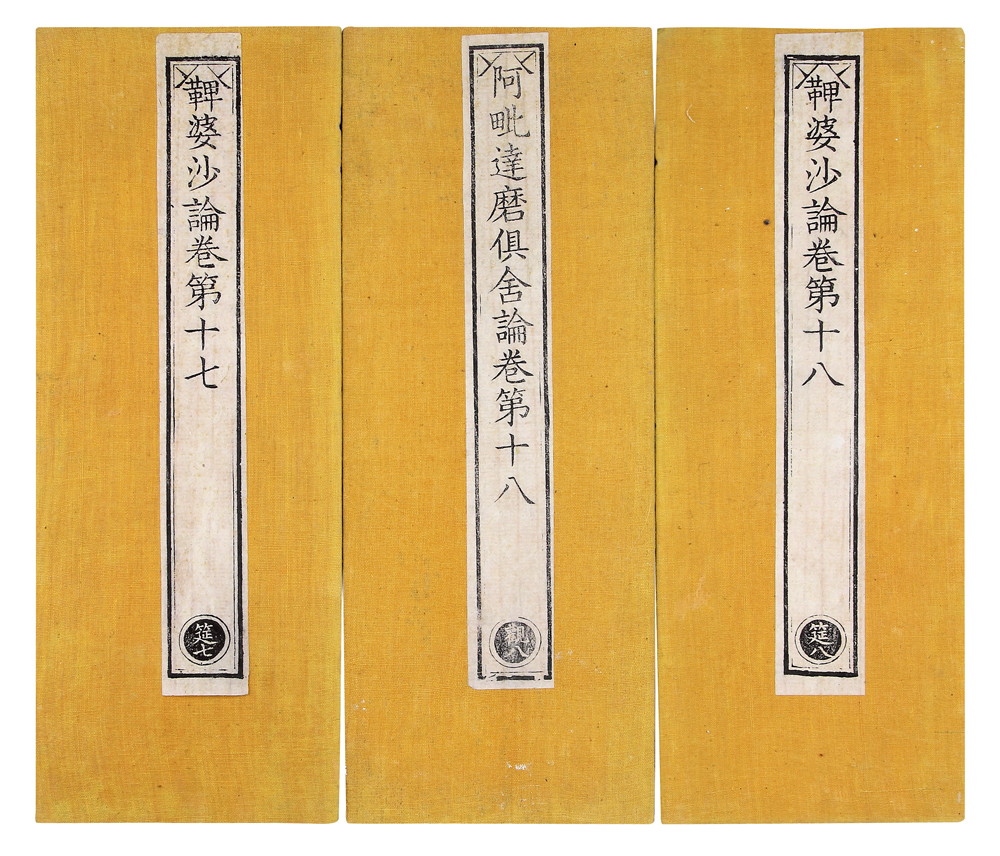 鞞婆沙論卷第十七
筵七
阿毗達磨俱舍論卷第十八
觀八
鞞婆沙論卷第十八
筵八